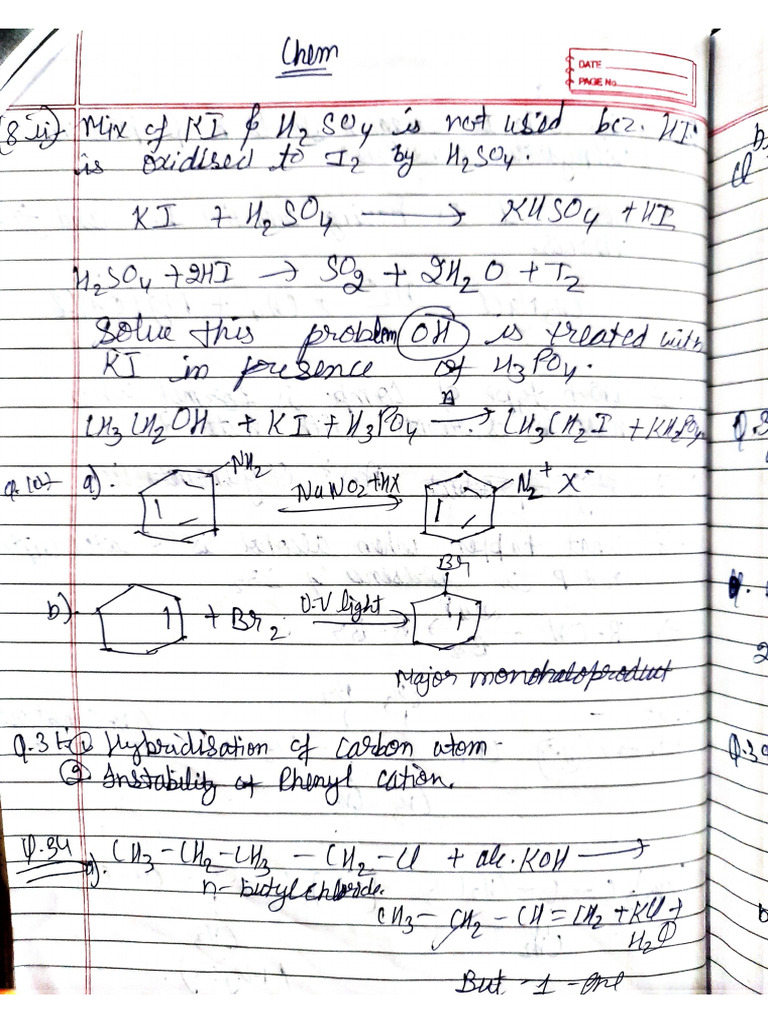 Chem
DATE
PAGE No
8 ii) Mix of KI & H2SO4 is not used bcz. HI
is oxidised to I2 by H2SO4.
KI + H2SO4 ⟶ KHSO4 + HI
H2SO4 + 2HI → SO2 + 2H2O + I2
Solve this problem OH is treated with
KI in presence of H3PO4.
CH3CH2OH + KI + H3PO4 ⟶ CH3CH2I + KH2PO4
Q.10) a). NH2 NaNO2+HX N2+ X-
Br
b). + Br2 U.V light
Major monohaloproduct
Q.31- ① Hybridisation of carbon atom
② Instability of Phenyl cation.
Q.34 a). CH3-CH2-CH3-CH2-Cl + alc.KOH ⟶
n-butylchloride.
CH3-CH2-CH=CH2 + KCl +
H2O
But-1-ene